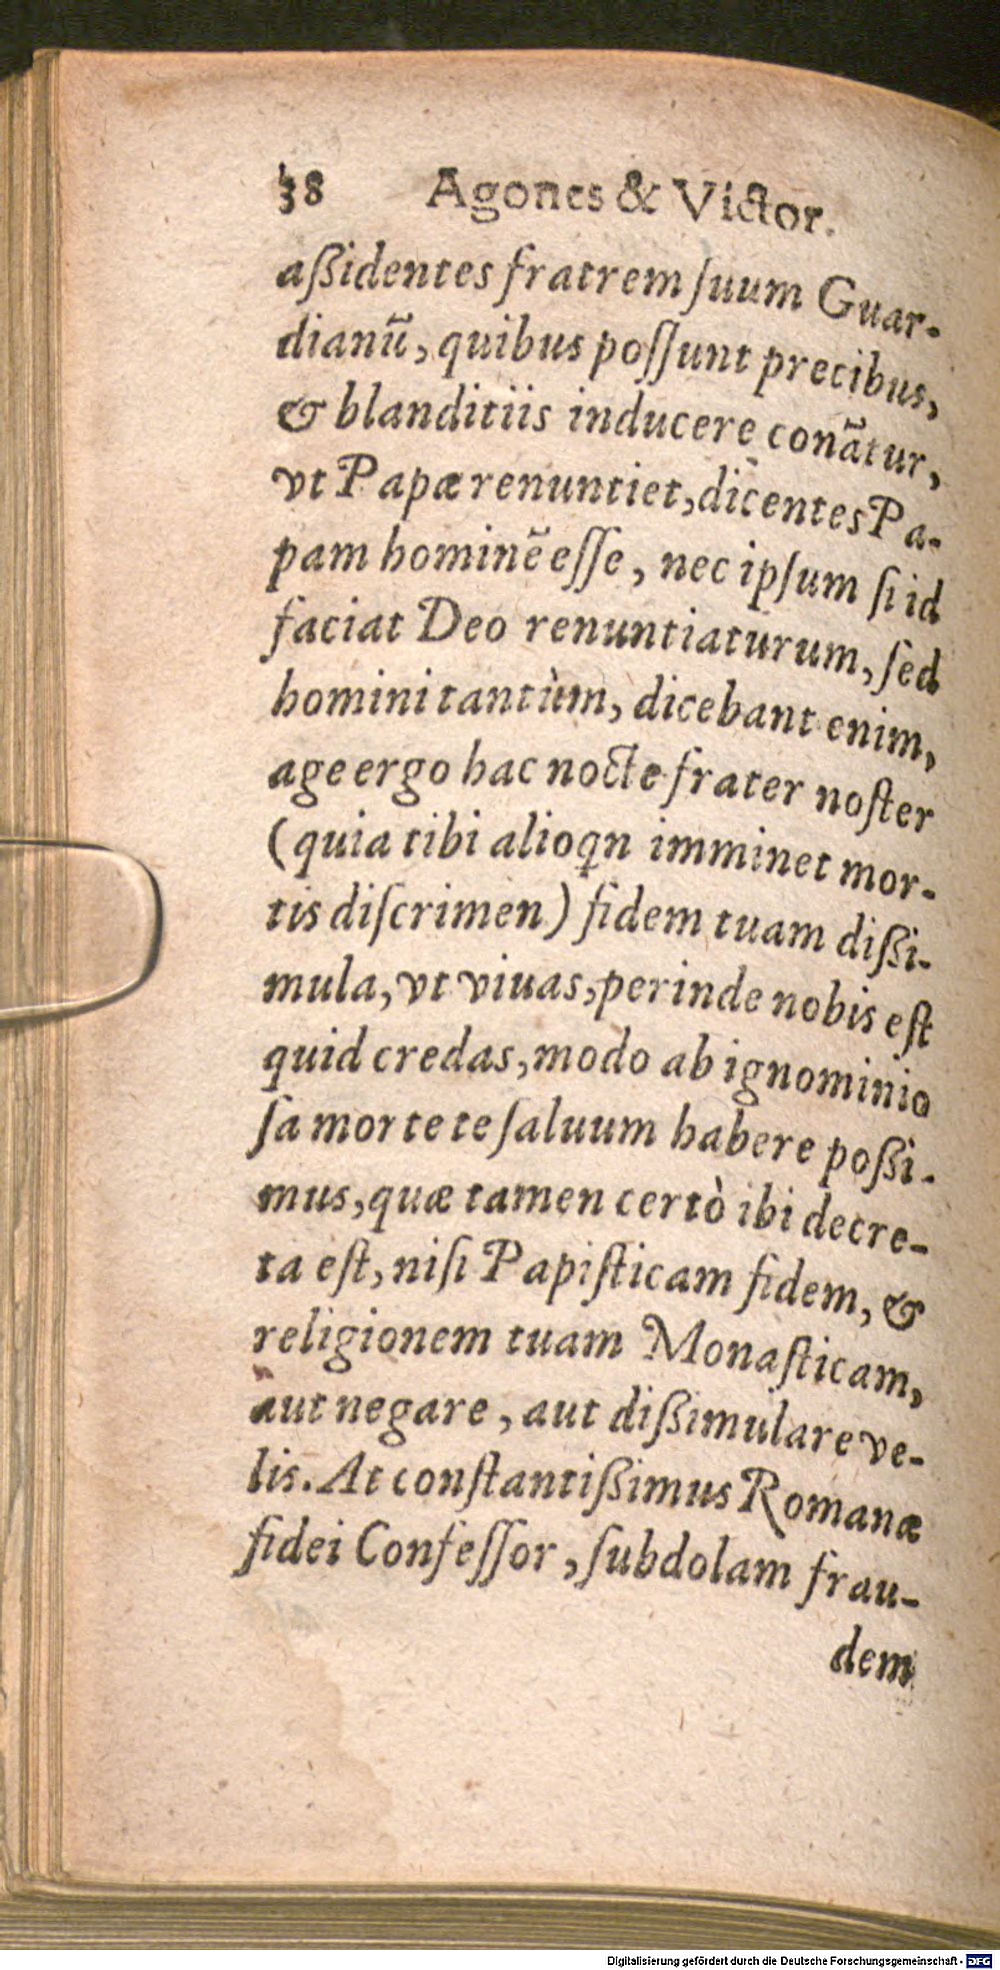 38 Agones & Victor.
aßidentes fratrem ſuum Guar-
dianū, quibus poſſunt precibus,
& blanditiis inducere conātur,
vt Papæ renuntiet, dicentes Pa-
pam hominē eſſe, nec ipſum ſi id
faciat Deo renuntiaturum, ſed
homini tantùm, dicebant enim,
age ergo hac nocte frater noſter
(quia tibi alioqn imminet mor-
tis diſcrimen) fidem tuam dißi-
mula, vt viuas, perinde nobis eſt
quid credas, modo ab ignominio
ſa morte te ſaluum habere poßi-
mus, quæ tamen certò ibi decre-
ta eſt, niſi Papiſticam fidem, &
religionem tuam Monaſticam,
aut negare, aut dißimulare ve-
lis. At conſtantißimus Romanæ
fidei Confeſſor, ſubdolam frau-
dem
Digitalisierung gefördert durch die Deutsche Forschungsgemeinschaft - DFG